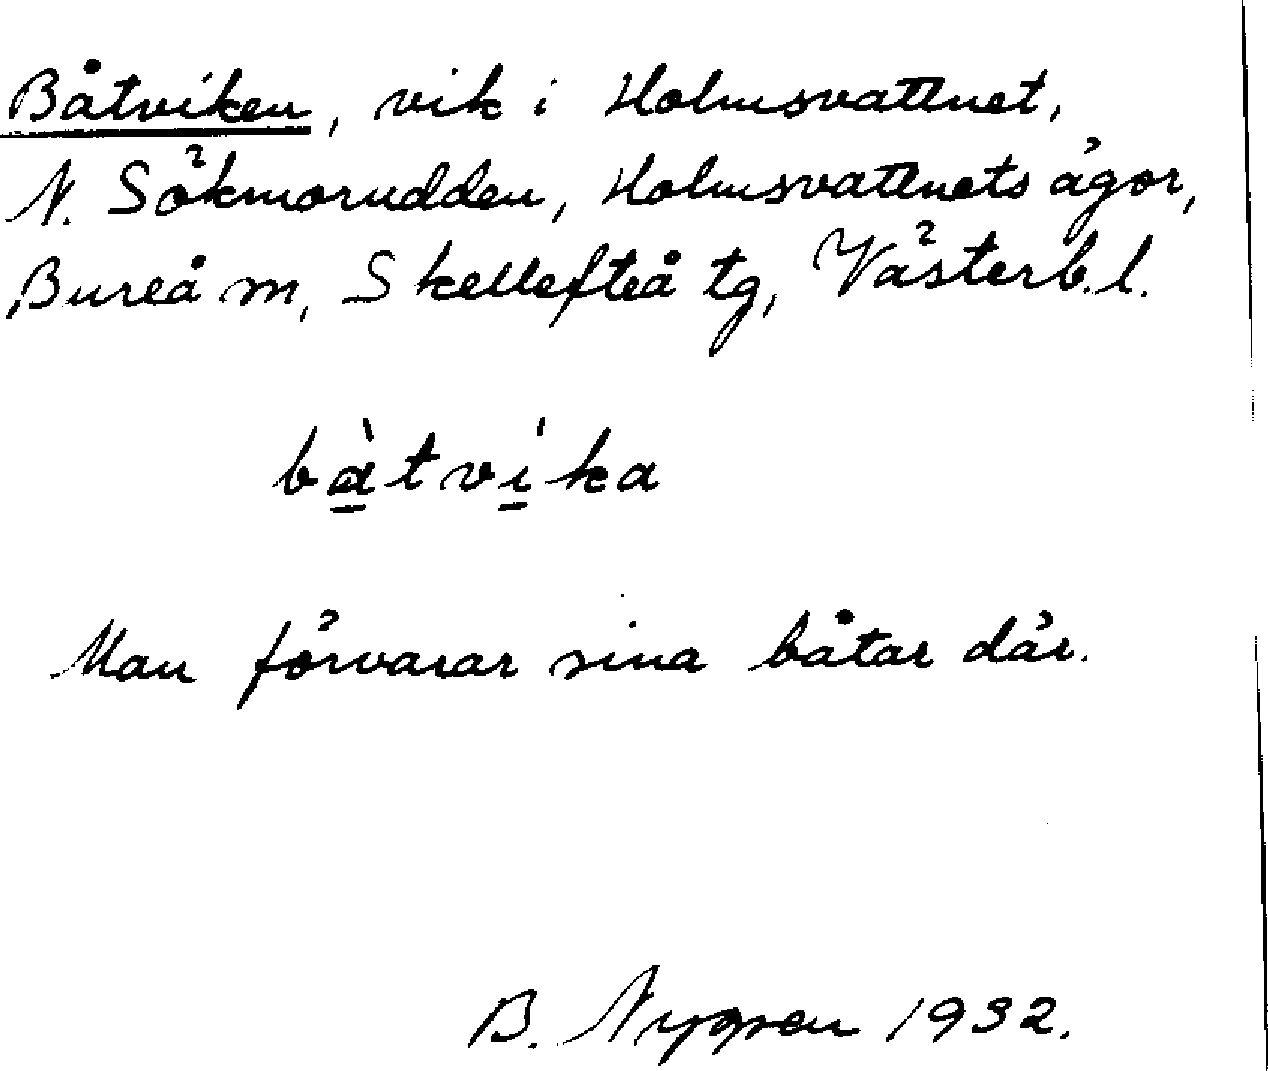 Båtviken, vik i Holmsvattnet,
N. Sökmorudden, Holmsvattnets ägor,
Bureå m, Skellefteå tg, Västerb. l.
bà̠tví̠ka
Man förvarar sina båtar där.
B. Nygren 1932.